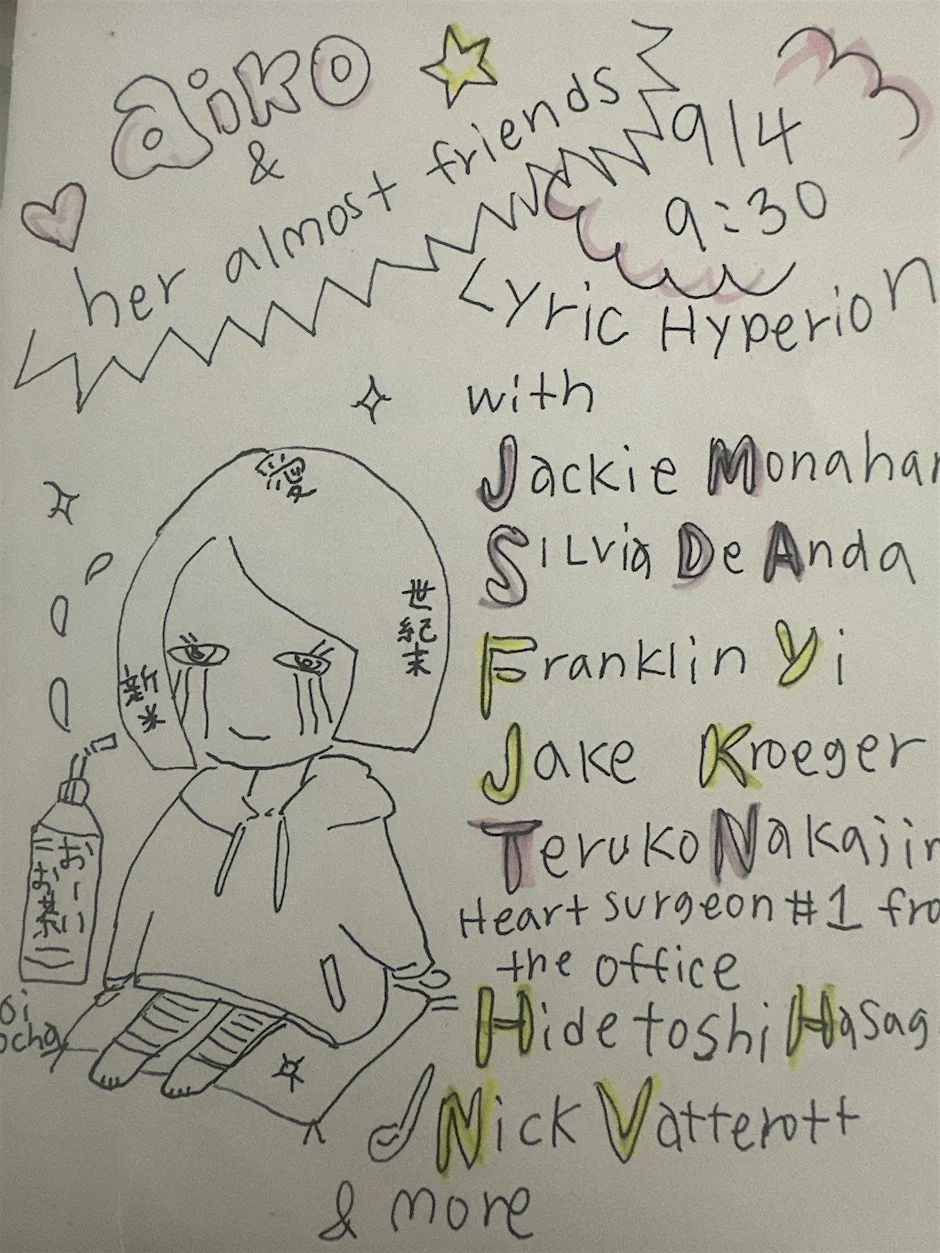 aiko
&
her almost friends
9/4
9:30
Lyric Hyperion
with
Jackie Monahan
Silvia De Anda
Franklin Yi
Jake Kroeger
Teruko Nakajim
Heart surgeon #1 fro
the office
Hidetoshi Hasag
Nick Vatterott
& more
世紀末
新米
おーい
お茶
oi
ocha